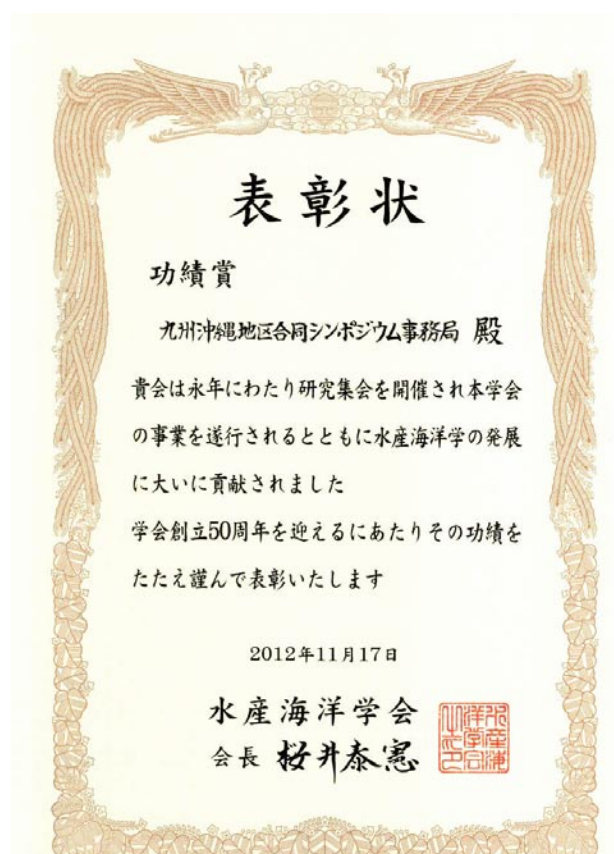 表彰状
功績賞
九州沖縄地区合同シンポジウム事務局 殿
貴会は永年にわたり研究集会を開催され本学会
の事業を遂行されるとともに水産海洋学の発展
に大いに貢献されました
学会創立50周年を迎えるにあたりその功績を
たたえ謹んで表彰いたします
2012年11月17日
水産海洋学会
会長 桜井泰憲
水産海洋学会之印